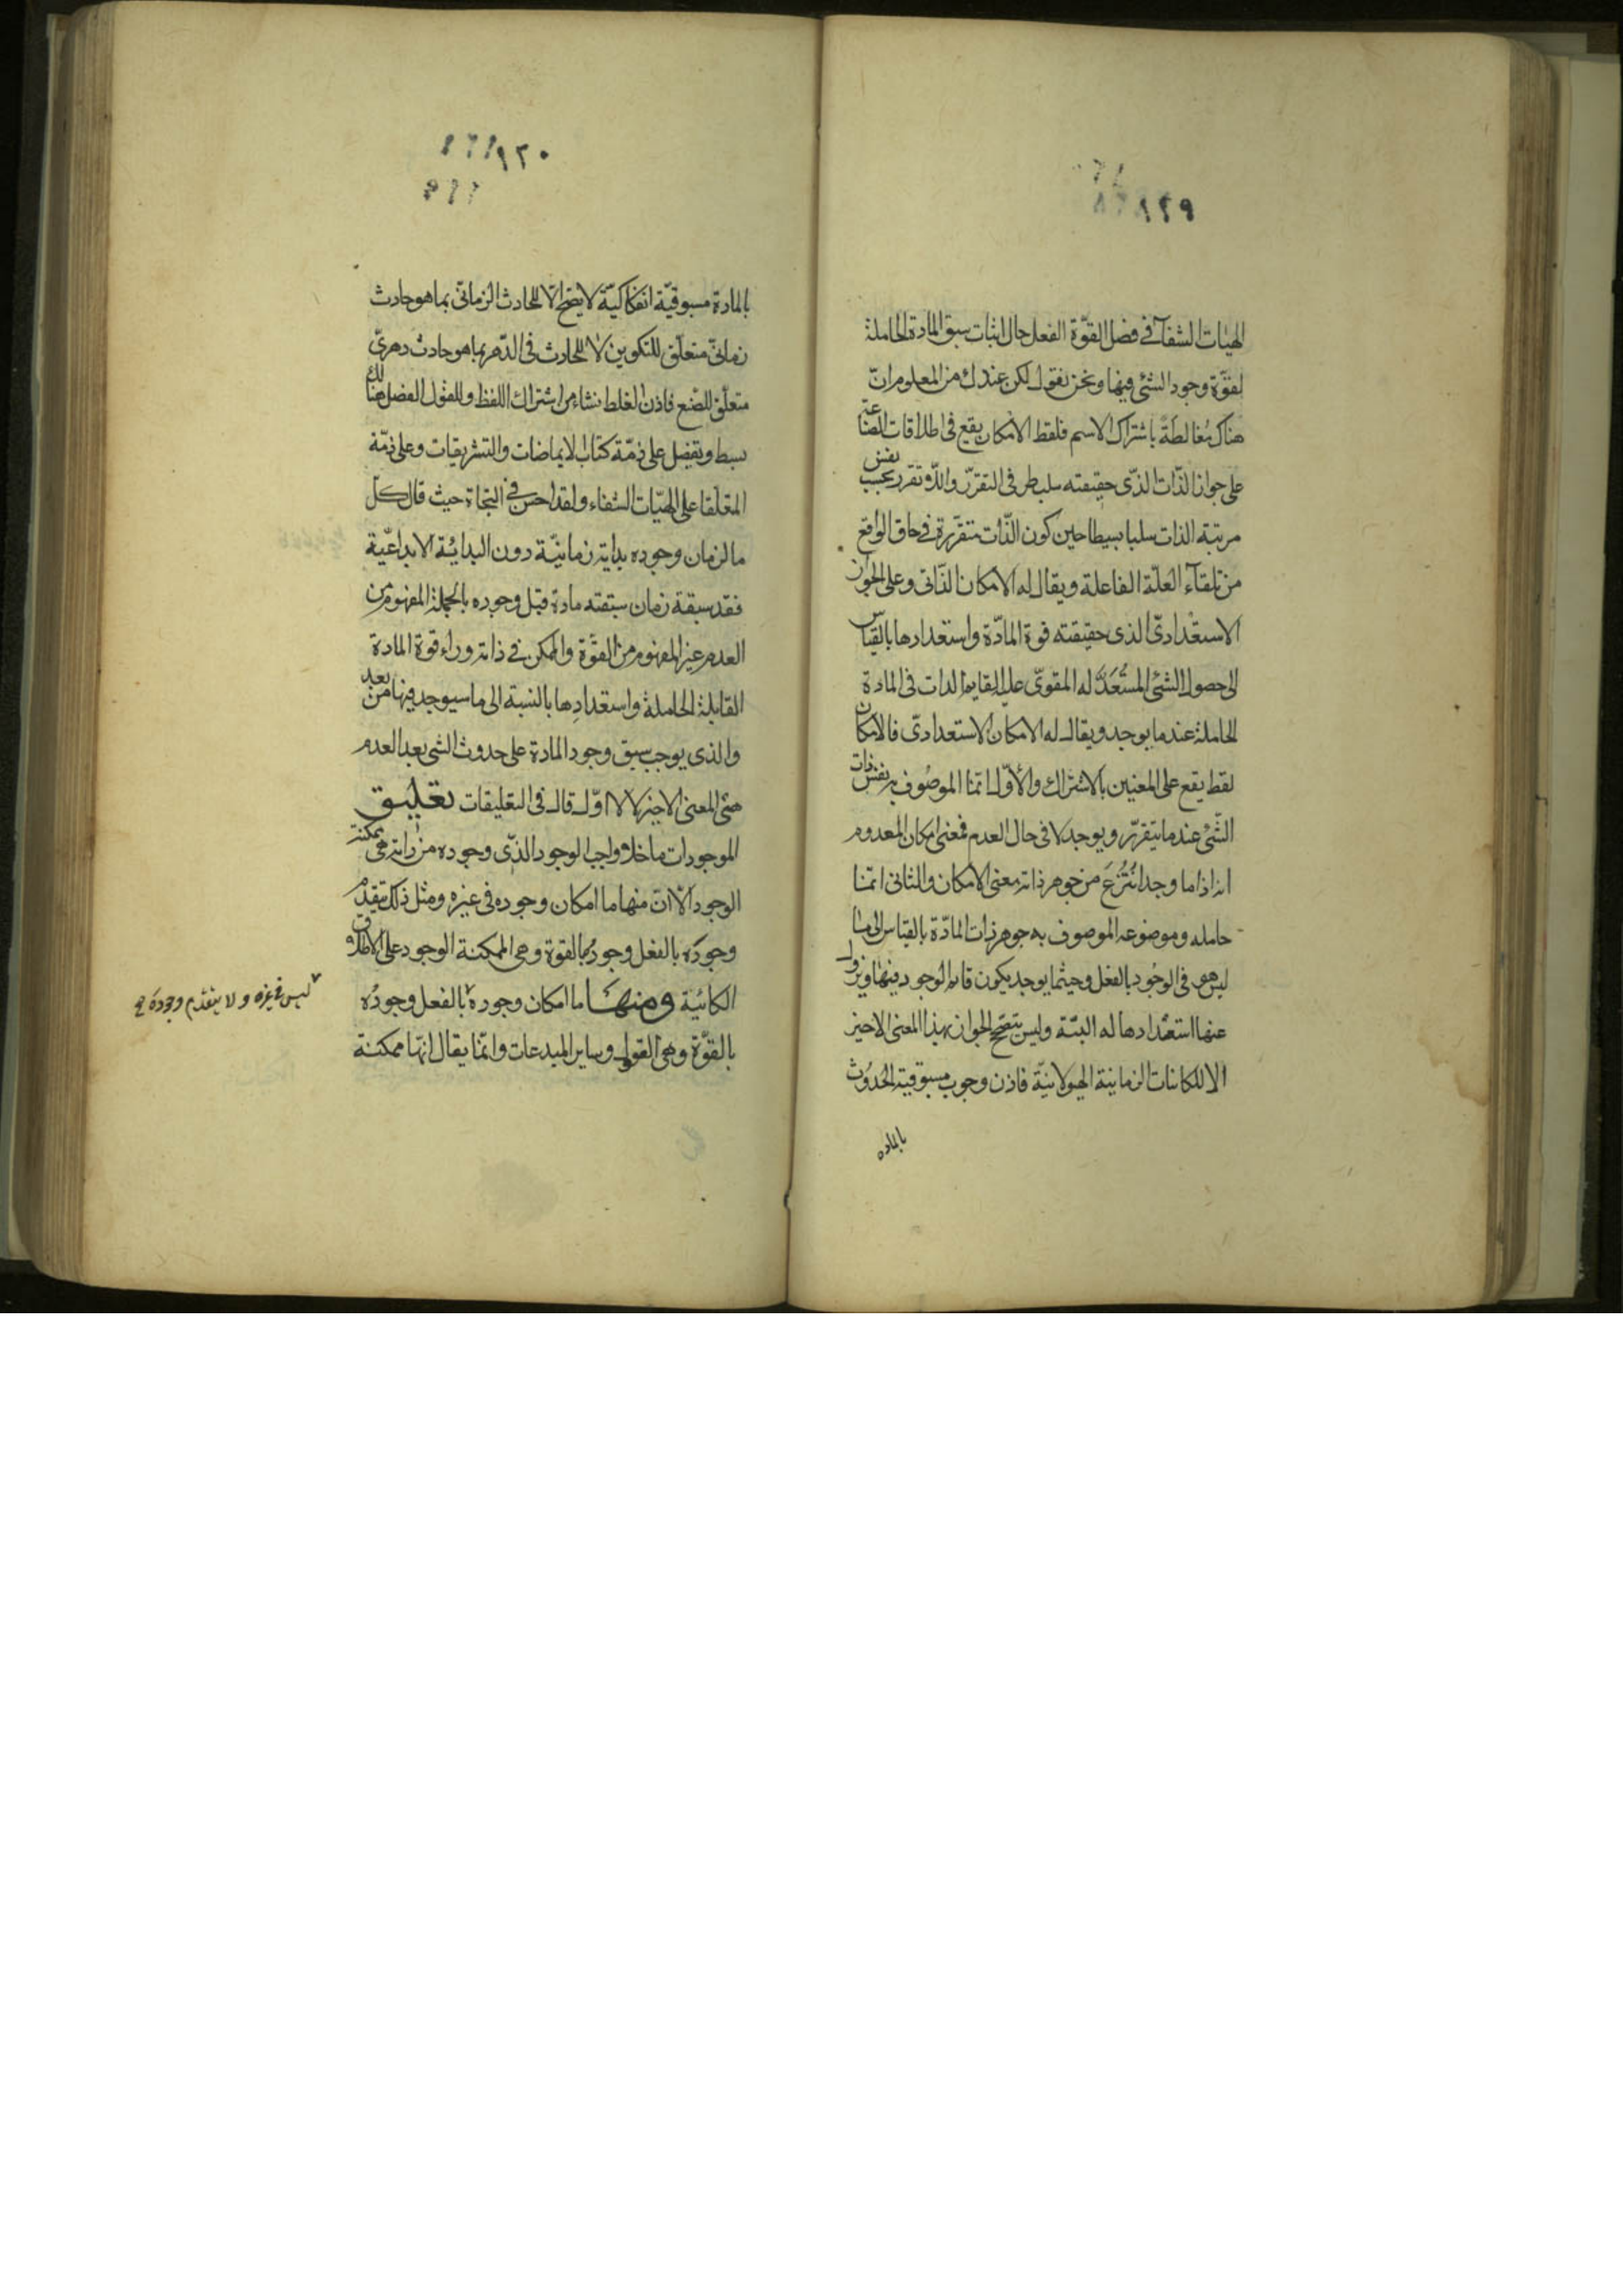 ١٢٩
الهيات الشفآء فى فصل القوّة الفعل حال اثبات سبق المادة الحاملة
لقوّة وجود الشئ فيها ونحن نقول لكن عندك من المعلوم انّ
هناك مُغالطَةً باشتراك الاسم فلفظ الامكان يقع فى اطلاقات الصناعة
على جواز الذّات الذّى حقيقته سلب طرفى التقرّر واللّا تقرر بحسب نفس
مرتبة الذات سلبا بسيطا حين كون الذّات متقرّرة فى حاق الواقع
من تلقآء العلّة الفاعلة ويقال له الامكان الذّاتى وعلى الجواز
الاستعدادىّ الذى حقيقته قوة المادّة واستعدادها بالقياس
الى حصول الشئ المستُعَدّ له المقوىّ عليه القايم الذات فى المادة
الحاملة عندما يوجد ويقال له الامكان الاستعدادىّ فالامكان
لفظ يقع على المعنيين بالاشتراك والأوّل انّما الموصُوف به نفس ذات
الشّئ عندما يتقرّر ويوجد لا فى حال العدم فمعنى امكان المعدوم
انه اذا ما وجد انتُزعَ من جوهر ذاته معنى الامكان والثانى انّما
حامله وموضوعه الموصوف به جوهر ذات المادّة بالقياس الى ما
ليس هو فى الوجُود بالفعل وحيثما يوجد يكون قار الوجود فيها ويزول
عنها استعدادها له البتّة وليس يتصحّ الجواز بهذا المعنى الاخير
الا للكاينات الزمانية الهيولانيّة فاذن وجوب مسبوقية الحُدوُث
بالماده
١٣٠
بالمادة مسبوقيّة انفكاكيّة لا يصحّ الّا للحادث الزمانىّ بما هو حادث
زمانىّ متعلّق للتكوين لا للحادث فى الدّهر بما هو حادث دهرىّ
متعلّق للصّنع فاذن الغلط نشاء من اشتراك اللفظ وللقول الفصل هنالك
بسط وتفصل على ذمّة كتاب الايماضات والتشريقات وعلى ذمّة
المعلّقا على الهيّات الشفاء ولقد احسن فى النجاة حيث قال كلّ
ما لزمان وجوده بداية زمانيّة دون البدائيّة الابداعيّة
فقد سبقة زمان سبقته مادة قبل وجوده بالجملة المفهوم من
العدم غير المفهوم من القوّة والممكن فى ذاته وراء قوّة المادة
القابلة الحاملة واستعدادِها بالنسبة الى ما سيوجد فيها من بعد
والذى يوجب سبق وجود المادة على حدوث الشى بعد العدم
هى المعنى الاخير لا الاوّل قال فى التعليقات تعليق
الموجودات ما خلا واجب الوجود الذّى وجوده من ذاته هى ممكنة
الوجود الّا انّ منها ما امكان وجوده فى غيره ومثل ذلك يتقدّم
وجودَه بالفعل وجودُه بالقوة وهى الممكنة الوجود على الاطلاق
الكائنة ومنها ما امكان وجوده بالفعل وجودُه
ليس فى غيره ولا يتقدّم وجودَه صح
بالقوّة وهى العقول وساير المبدعات وانّما يقال انّها ممكنة